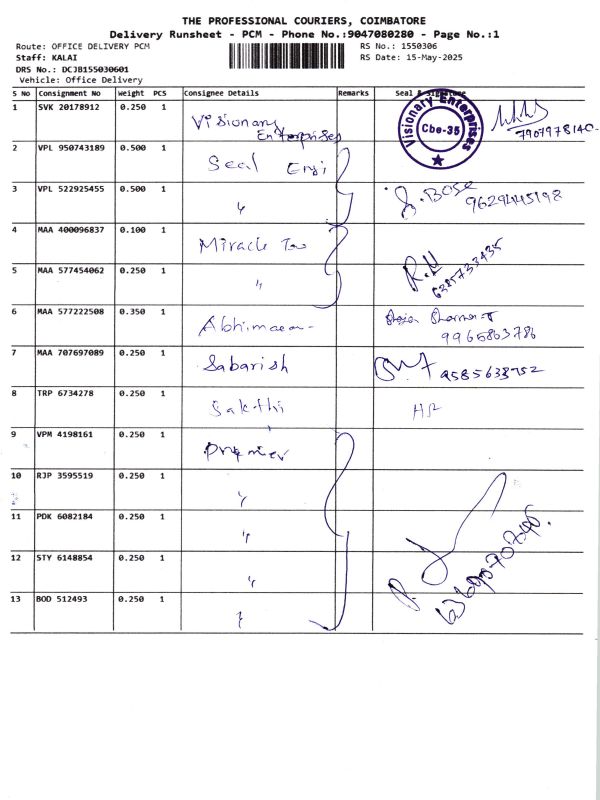 THE PROFESSIONAL COURIERS, COIMBATORE
Delivery Runsheet - PCM - Phone No.:9047080280 - Page No.:1
Route: OFFICE DELIVERY PCM
Staff: KALAI
DRS No.: DCJB155030601
Vehicle: Office Delivery
RS No.: 1550306
RS Date: 15-May-2025
S No Consignment No Weight PCS Consignee Details Remarks Seal & Signature
1 SVK 20178912 0.250 1 Visionary Enterprises
Visionary Enterprises Cbe-35
7907978140
2 VPL 950743189 0.500 1 Seal Engi
3 VPL 522925455 0.500 1 " S. BOSE 9629445198
4 MAA 400096837 0.100 1 Miracle
5 MAA 577454062 0.250 1 " 6385733435
6 MAA 577222508 0.350 1 9965803786
7 MAA 707697089 0.250 1 Sabarish 9585638752
8 TRP 6734278 0.250 1 Sakthi
9 VPM 4198161 0.250 1 Premier
10 RJP 3595519 0.250 1 "
11 PDK 6082184 0.250 1 "
12 STY 6148854 0.250 1 "
13 BOD 512493 0.250 1 "